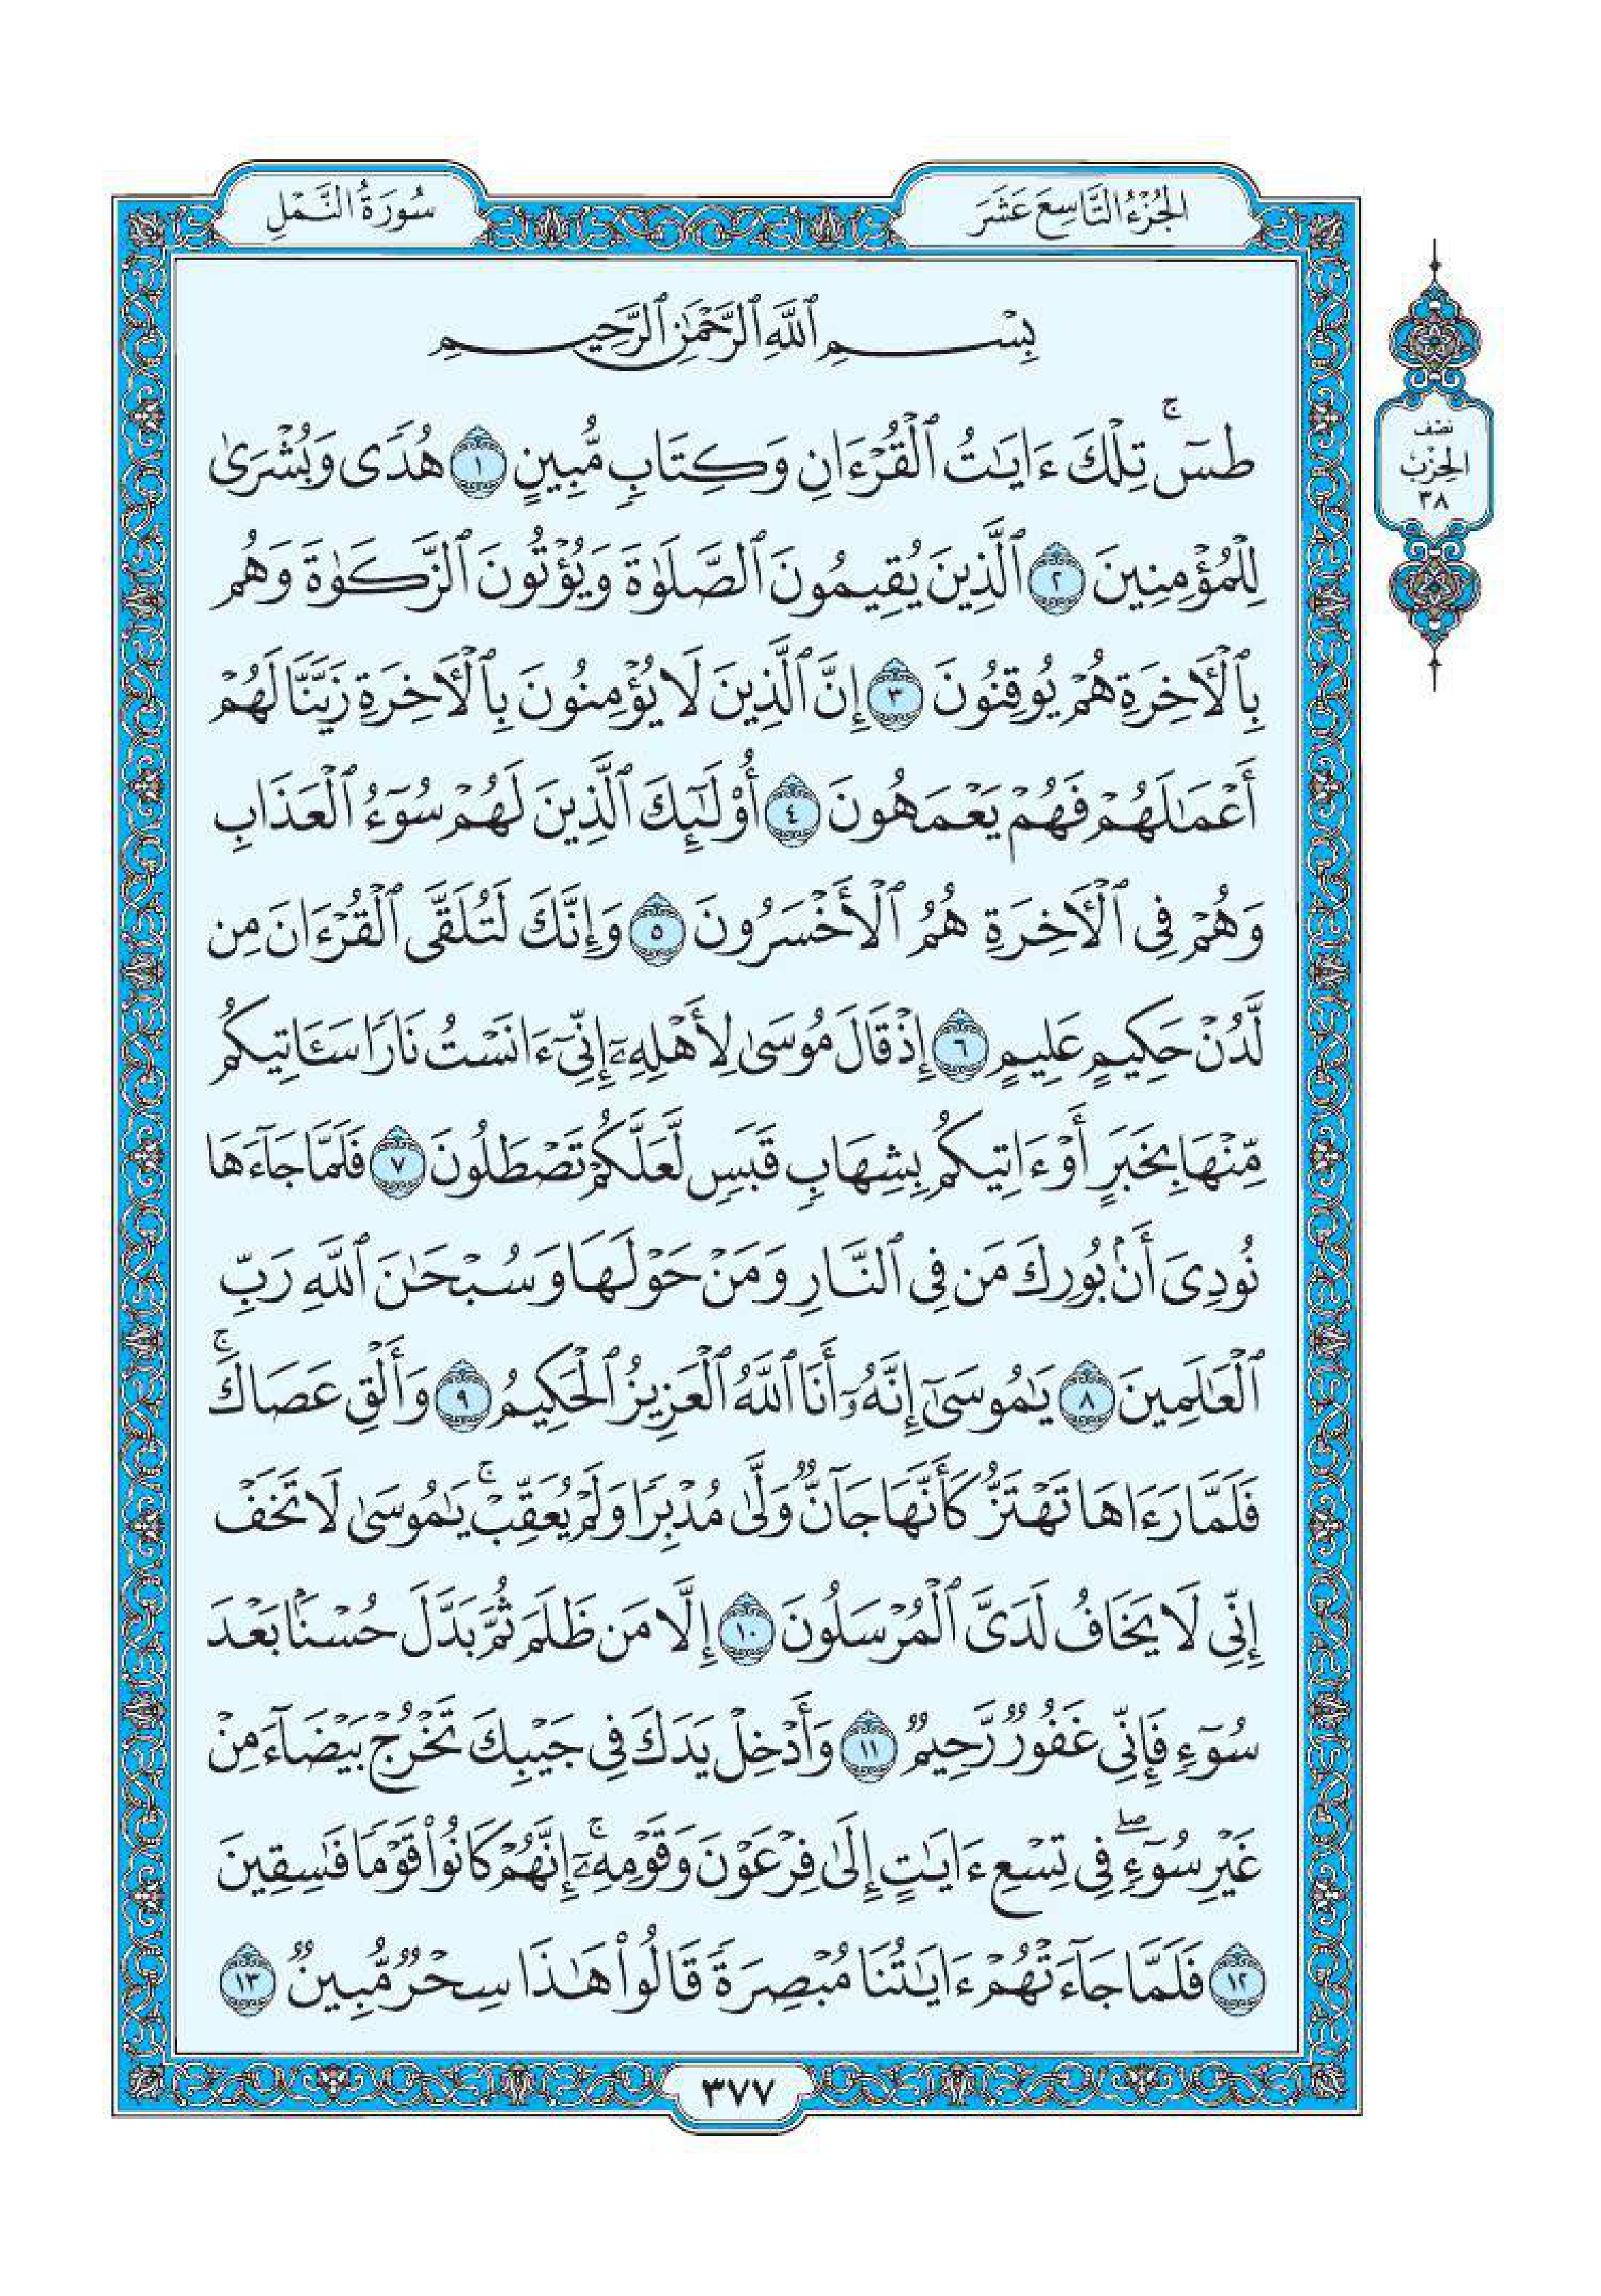 الجُزْءُ التَّاسِعَ عَشَرَ
سُورَةُ النَّمْلِ
بِسْمِ ٱللَّهِ ٱلرَّحْمَٰنِ ٱلرَّحِيمِ
نصف
الحِزْب
٣٨
طسٓۚ تِلْكَ ءَايَٰتُ ٱلْقُرْءَانِ وَكِتَابٍ مُّبِينٍ ١ هُدًى وَبُشْرَىٰ
لِلْمُؤْمِنِينَ ٢ ٱلَّذِينَ يُقِيمُونَ ٱلصَّلَوٰةَ وَيُؤْتُونَ ٱلزَّكَوٰةَ وَهُم
بِٱلْأَخِرَةِ هُمْ يُوقِنُونَ ٣ إِنَّ ٱلَّذِينَ لَا يُؤْمِنُونَ بِٱلْأَخِرَةِ زَيَّنَّا لَهُمْ
أَعْمَٰلَهُمْ فَهُمْ يَعْمَهُونَ ٤ أُوْلَٰٓئِكَ ٱلَّذِينَ لَهُمْ سُوٓءُ ٱلْعَذَابِ
وَهُمْ فِى ٱلْأَخِرَةِ هُمُ ٱلْأَخْسَرُونَ ٥ وَإِنَّكَ لَتُلَقَّى ٱلْقُرْءَانَ مِن
لَّدُنْ حَكِيمٍ عَلِيمٍ ٦ إِذْ قَالَ مُوسَىٰ لِأَهْلِهِۦٓ إِنِّىٓ ءَانَسْتُ نَارًا سَـَٔاتِيكُم
مِّنْهَا بِخَبَرٍ أَوْ ءَاتِيكُم بِشِهَابٍ قَبَسٍ لَّعَلَّكُمْ تَصْطَلُونَ ٧ فَلَمَّا جَآءَهَا
نُودِىَ أَنۢ بُورِكَ مَن فِى ٱلنَّارِ وَمَنْ حَوْلَهَا وَسُبْحَٰنَ ٱللَّهِ رَبِّ
ٱلْعَٰلَمِينَ ٨ يَٰمُوسَىٰٓ إِنَّهُۥٓ أَنَا ٱللَّهُ ٱلْعَزِيزُ ٱلْحَكِيمُ ٩ وَأَلْقِ عَصَاكَۚ
فَلَمَّا رَءَاهَا تَهْتَزُّ كَأَنَّهَا جَآنٌّ وَلَّىٰ مُدْبِرًا وَلَمْ يُعَقِّبْۚ يَٰمُوسَىٰ لَا تَخَفْ
إِنِّى لَا يَخَافُ لَدَىَّ ٱلْمُرْسَلُونَ ١٠ إِلَّا مَن ظَلَمَ ثُمَّ بَدَّلَ حُسْنًۢا بَعْدَ
سُوٓءٍ فَإِنِّى غَفُورٌ رَّحِيمٌ ١١ وَأَدْخِلْ يَدَكَ فِى جَيْبِكَ تَخْرُجْ بَيْضَآءَ مِنْ
غَيْرِ سُوٓءٍۖ فِى تِسْعِ ءَايَٰتٍ إِلَىٰ فِرْعَوْنَ وَقَوْمِهِۦٓۚ إِنَّهُمْ كَانُوا۟ قَوْمًا فَٰسِقِينَ
١٢ فَلَمَّا جَآءَتْهُمْ ءَايَٰتُنَا مُبْصِرَةً قَالُوا۟ هَٰذَا سِحْرٌ مُّبِينٌ ١٣
٣٧٧